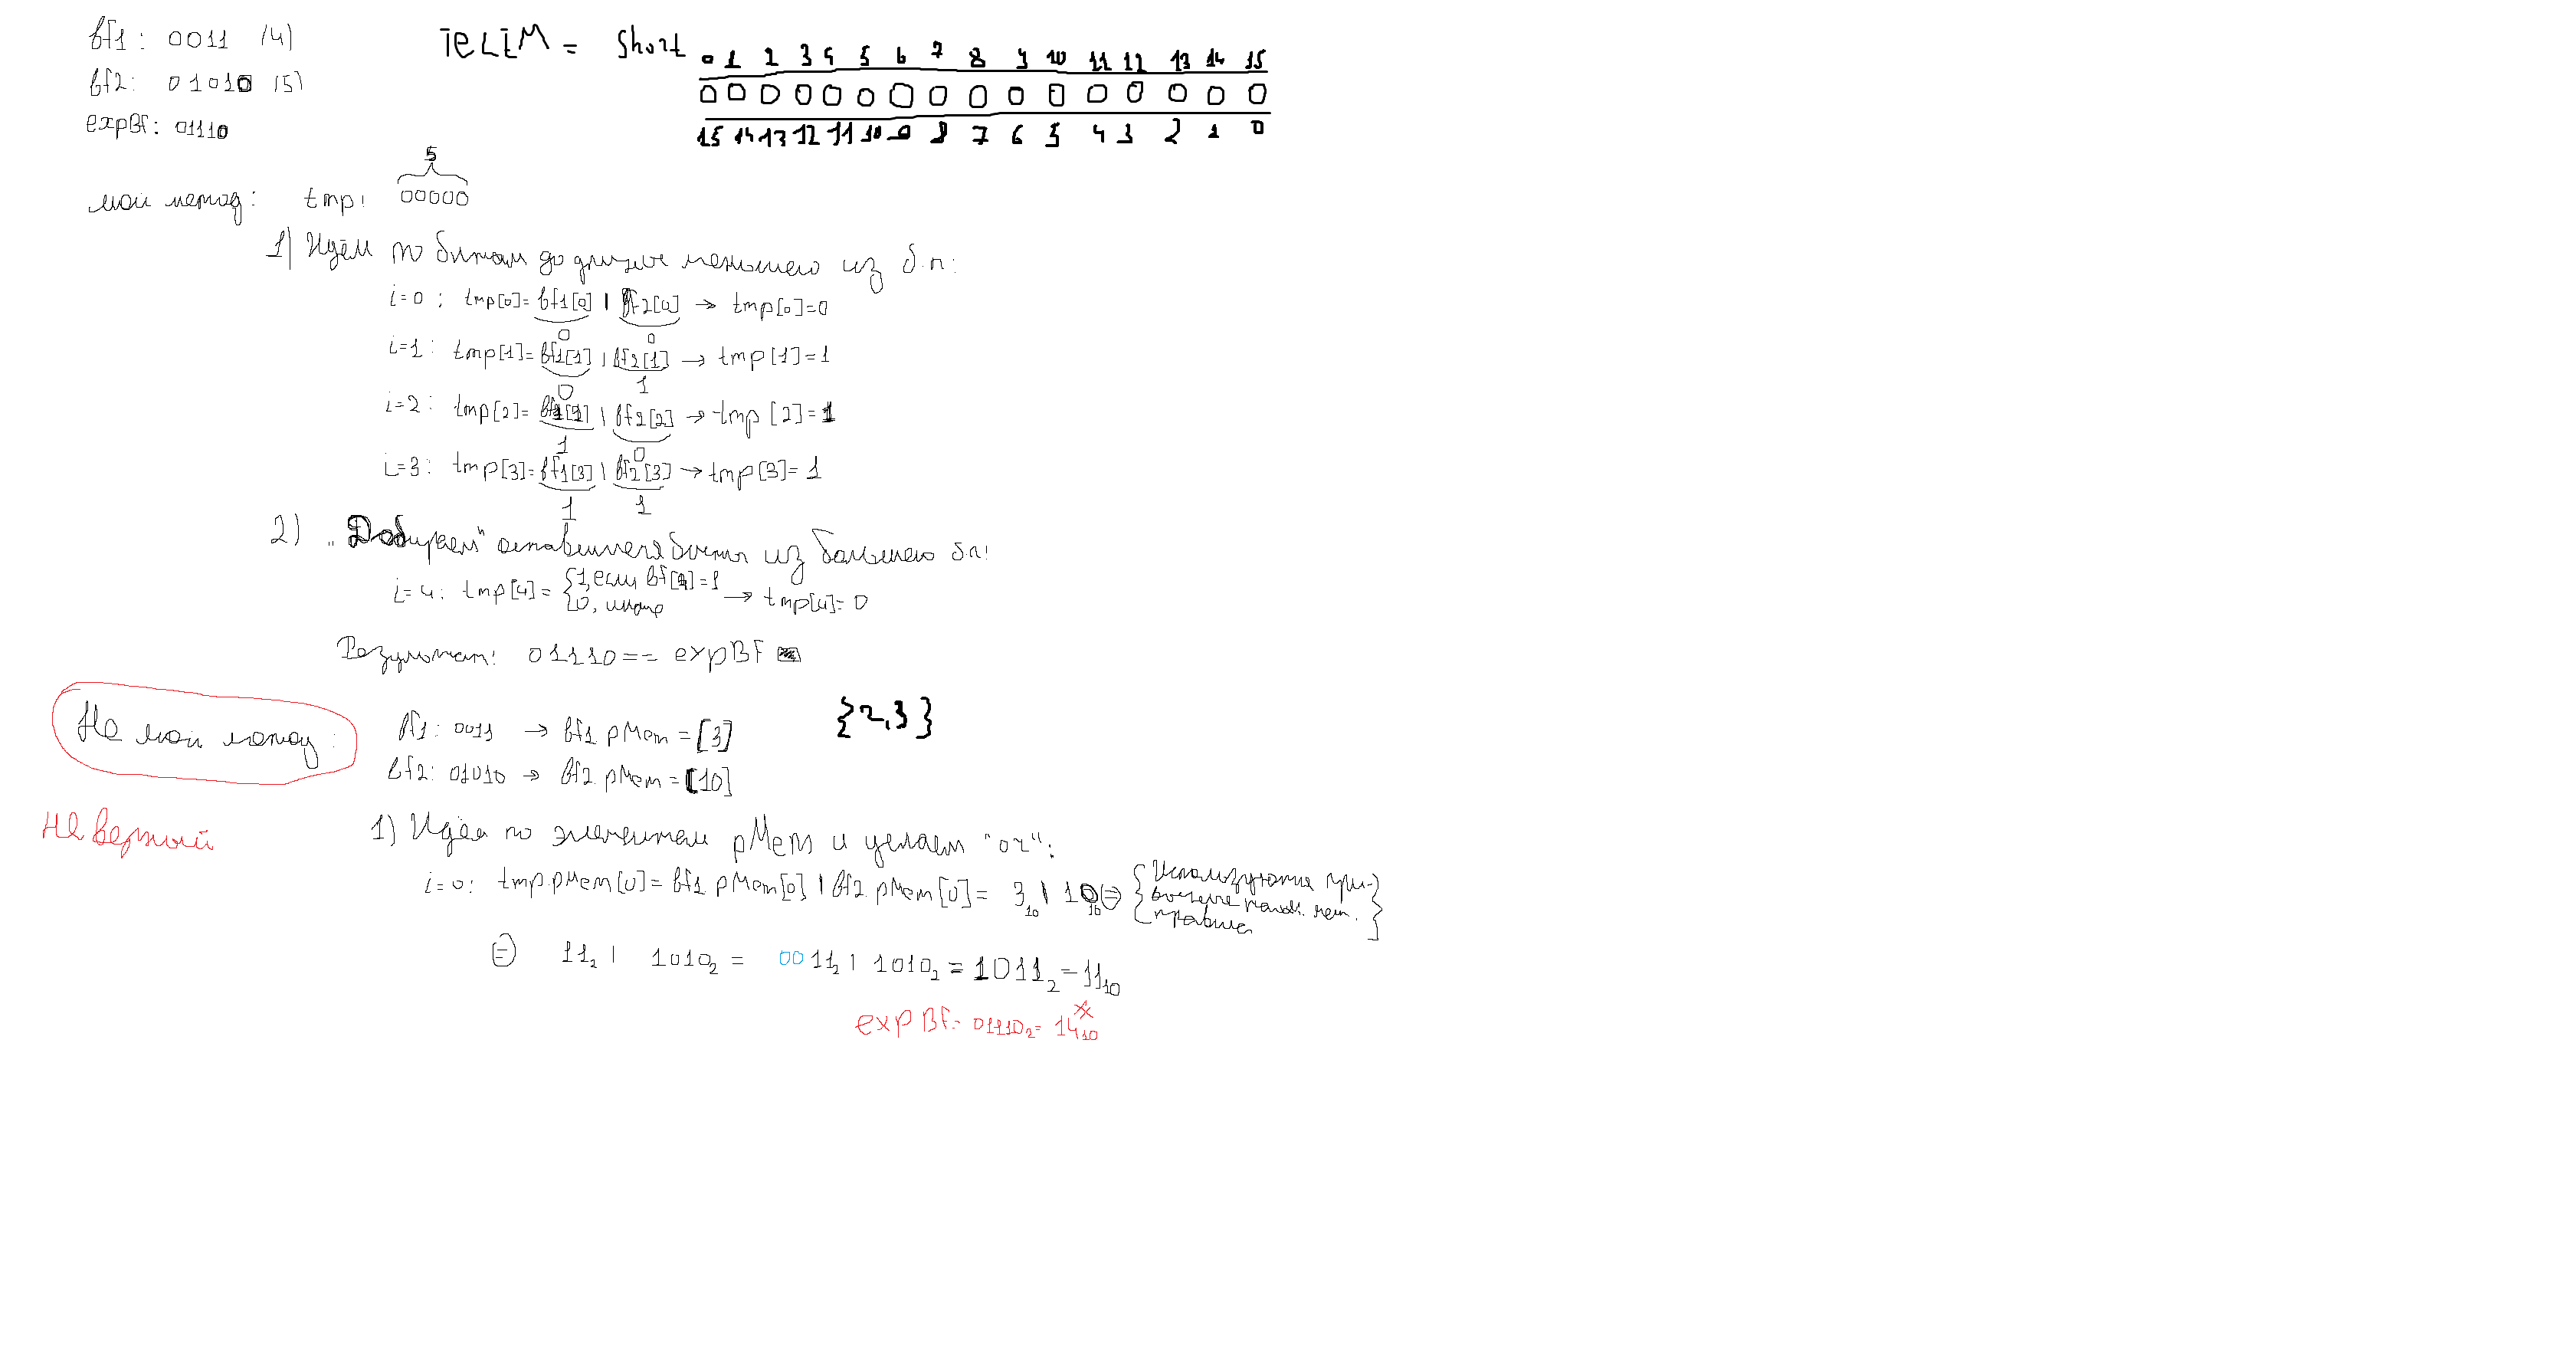 bf1: 0011 (4)
bf2: 01010 (5)
expBf: 01110
TELEM = short
0 1 2 3 4 5 6 7 8 9 10 11 12 13 14 15
0 0 0 0 0 0 0 0 0 0 0 0 0 0 0 0
15 14 13 12 11 10 9 8 7 6 5 4 3 2 1 0
5
мой метод: tmp: 00000
1) Идём по битам до длины меньшего из б.п:
i=0: tmp[0]=bf1[0] | bf2[0] → tmp[0]=0
0 0
i=1: tmp[1]=bf1[1] | bf2[1] → tmp[1]=1
0 1
i=2: tmp[2]=bf1[2] | bf2[2] → tmp[2]=1
1 0
i=3: tmp[3]=bf1[3] | bf2[3] → tmp[3]=1
1 1
2) „Добираем" оставшиеся биты из большего б.п:
i=4: tmp[4]= {1, если bf[4]=1 → tmp[4]=0
0, иначе
Результат: 01110 == expBF
Не мой метод:
неверный
bf1: 0011 → bf1.pMem=[3]
{2,3}
bf2: 01010 → bf2.pMem=[10]
1) Идём по элементам pMem и делаем "or":
i=0: tmp.pMem[0]=bf1.pMem[0] | bf2.pMem[0]= 3₁₀ | 10₁₀ ⊜ {Используются при-
вычные
правила}
⊜ 11₂ | 1010₂ = 0011₂ | 1010₂ = 1011₂ = 11₁₀
expBF = 01110₂ = 14₁₀